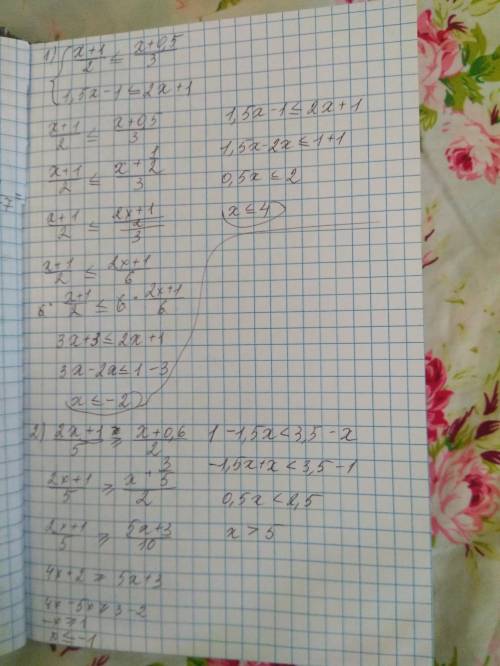 1) { (x+1)/2 ≤ (x+0,5)/3
{ 1,5x-1 ≤ 2x+1
(x+1)/2 ≤ (x+0,5)/3
(x+1)/2 ≤ (x+1/2)/3
(x+1)/2 ≤ ((2x+1)/2)/3
(x+1)/2 ≤ (2x+1)/6
6 · (x+1)/2 ≤ 6 · (2x+1)/6
3x+3 ≤ 2x+1
3x-2x ≤ 1-3
x ≤ -2
1,5x-1 ≤ 2x+1
1,5x-2x ≤ 1+1
0,5x ≤ 2
x ≤ 4
2) (2x+1)/5 ≥ (x+0,6)/2
(2x+1)/5 ≥ (x+3/5)/2
(2x+1)/5 ≥ (5x+3)/10
4x+2 ≥ 5x+3
4x-5x ≥ 3-2
-x ≥ 1
x ≤ -1
1-1,5x < 3,5-x
-1,5x+x < 3,5-1
0,5x < 2,5
x > 5